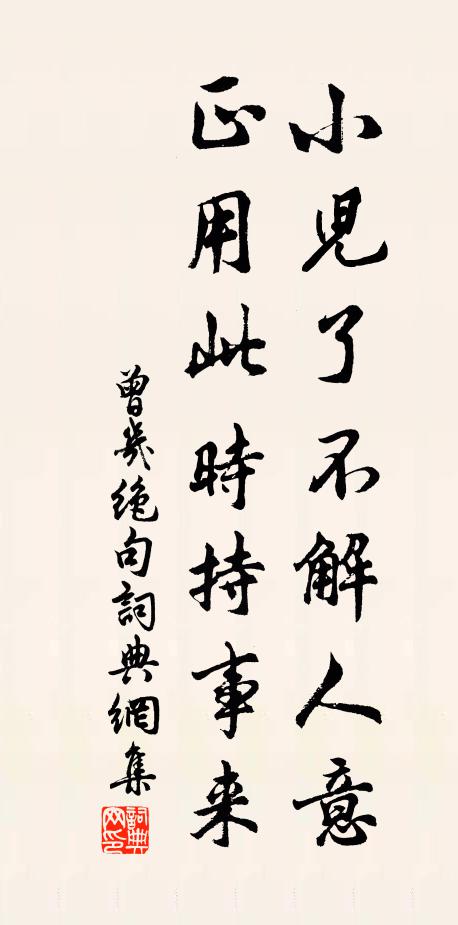 小児了不解人意
正用此時持事来
曾幾绝句詞典網集
詞典网印